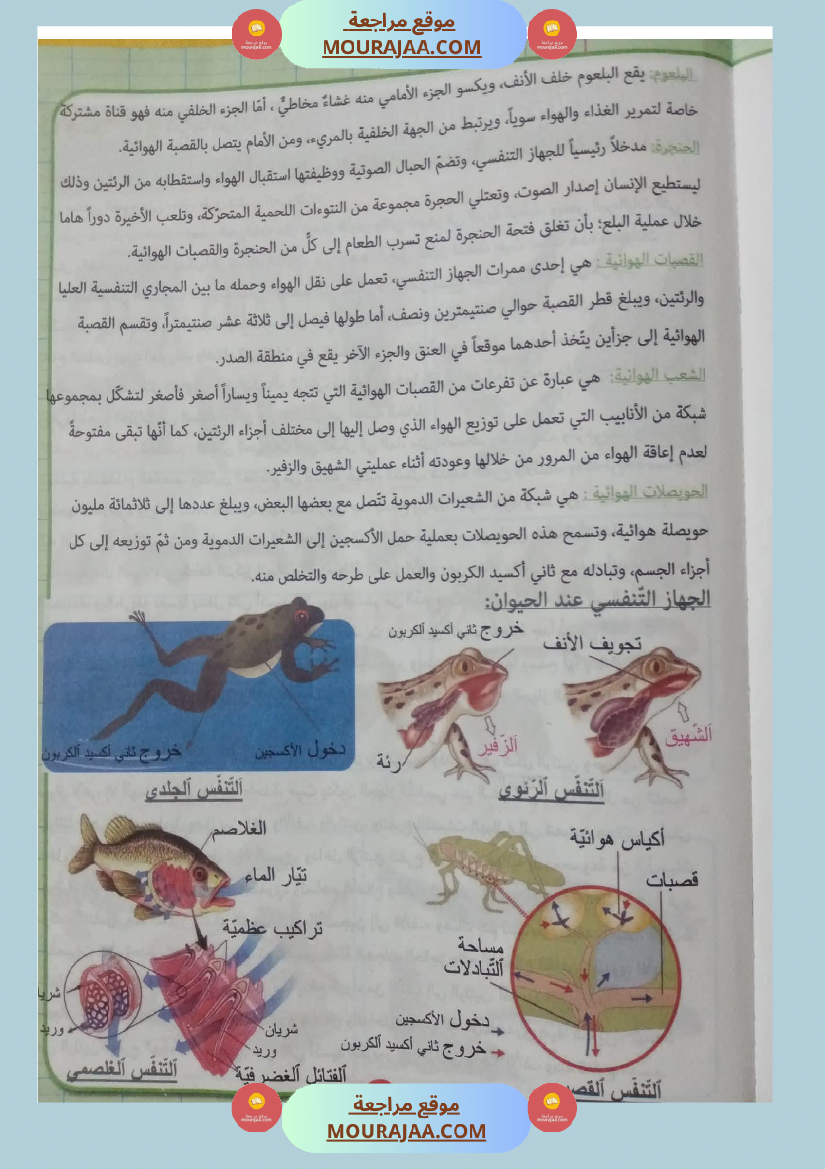 موقع مراجعة
MOURAJAA.COM
البلعوم: يقع البلعوم خلف الأنف، ويكسو الجزء الأمامي منه غشاءٌ مخاطيٌّ ، أمّا الجزء الخلفي منه فهو قناة مشتركة
خاصة لتمرير الغذاء والهواء سوياً، ويرتبط من الجهة الخلفية بالمريء، ومن الأمام يتصل بالقصبة الهوائية.
الحنجرة: مدخلاً رئيسياً للجهاز التنفسي، وتضمّ الحبال الصوتية ووظيفتها استقبال الهواء واستقطابه من الرئتين وذلك
ليستطيع الإنسان إصدار الصوت، وتعتلي الحجرة مجموعة من النتوءات اللحمية المتحرّكة، وتلعب الأخيرة دوراً هاما
خلال عملية البلع؛ بأن تغلق فتحة الحنجرة لمنع تسرب الطعام إلى كلٍّ من الحنجرة والقصبات الهوائية.
القصبات الهوائية : هي إحدى ممرات الجهاز التنفسي، تعمل على نقل الهواء وحمله ما بين المجاري التنفسية العليا
والرئتين، ويبلغ قطر القصبة حوالي صنتيمترين ونصف، أما طولها فيصل إلى ثلاثة عشر صنتيمتراً، وتقسم القصبة
الهوائية إلى جزأين يتّخذ أحدهما موقعاً في العنق والجزء الآخر يقع في منطقة الصدر.
الشعب الهوائية: هي عبارة عن تفرعات من القصبات الهوائية التي تتجه يميناً ويساراً أصغر فأصغر لتشكّل بمجموعها
شبكة من الأنابيب التي تعمل على توزيع الهواء الذي وصل إليها إلى مختلف أجزاء الرئتين، كما أنّها تبقى مفتوحةً
لعدم إعاقة الهواء من المرور من خلالها وعودته أثناء عمليتي الشهيق والزفير.
الحويصلات الهوائية : هي شبكة من الشعيرات الدموية تتّصل مع بعضها البعض، ويبلغ عددها إلى ثلاثمائة مليون
حويصلة هوائية، وتسمح هذه الحويصلات بعملية حمل الأكسجين إلى الشعيرات الدموية ومن ثمّ توزيعه إلى كل
أجزاء الجسم، وتبادله مع ثاني أكسيد الكربون والعمل على طرحه والتخلص منه.
الجهاز التّنفسي عند الحيوان:
خروج ثاني أكسيد ألكربون
تجويف الأنف
اَلشّهيق
اَلزّفير
رئة
اَلتّنفّس اَلرّئوي
دخول الأكسجين
خروج ثاني أكسيد ألكربون
اَلتّنفّس اَلجلدي
أكياس هوائيّة
قصبات
مساحة
اَلتّبادلات
دخول الأكسجين
خروج ثاني أكسيد ألكربون
الغلاصم
تيّار الماء
تراكيب عظميّة
وريد
شريان
وريد
الفتائل اَلغضرفيّة
اَلتّنفّس اَلغلصمي
اَلتّنفّس
موقع مراجعة
MOURAJAA.COM